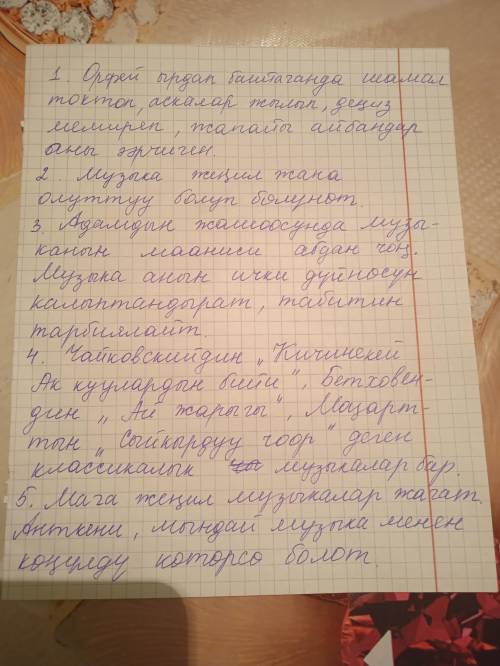 1. Орфей ырдап баштаганда шамал
токтоп, аскалар жылып, деңиз
мемиреп, жапайы айбандар
аны ээрчиген.
2. Музыка жеңил жана
олуттуу болуп бөлүнөт.
3. Адамдын жашоосунда музы-
канын мааниси абдан чоң.
Музыка анын ички дүйнөсүн
калыптандырат, табитин
тарбиялайт.
4. Чайковскийдин „Кичинекей
Ак куулардын бийи", Бетховен-
дин „Ай жарыгы", Моцарт-
тын „Сыйкырдуу чоор" деген
классикалык музыкалар бар.
5. Мага жеңил музыкалар жагат.
Анткени, мындай музыка менен
көңүлдү көтөрсө болот.